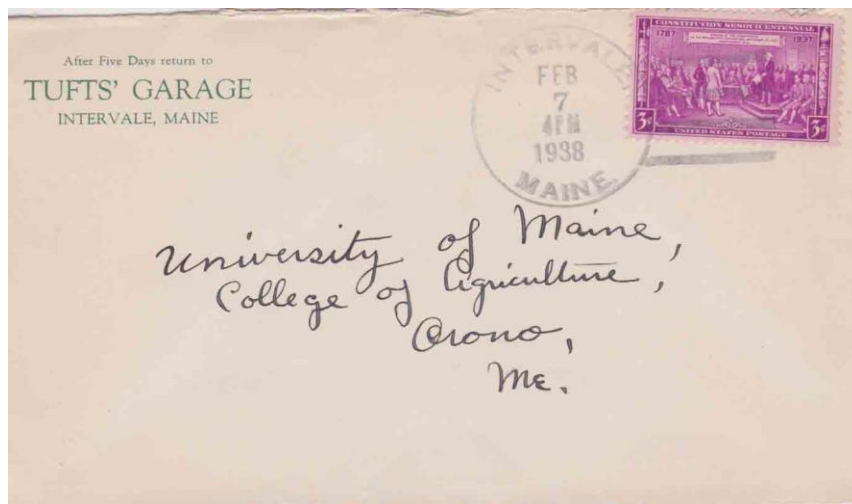 After Five Days return to
TUFTS' GARAGE
INTERVALE, MAINE
INTERVALE,
FEB
7
4PM
1938
MAINE.
CONSTITUTION SESQUICENTENNIAL
1787 1937
3¢ 3¢
UNITED STATES POSTAGE
University of Maine,
College of Agriculture,
Orono,
Me.